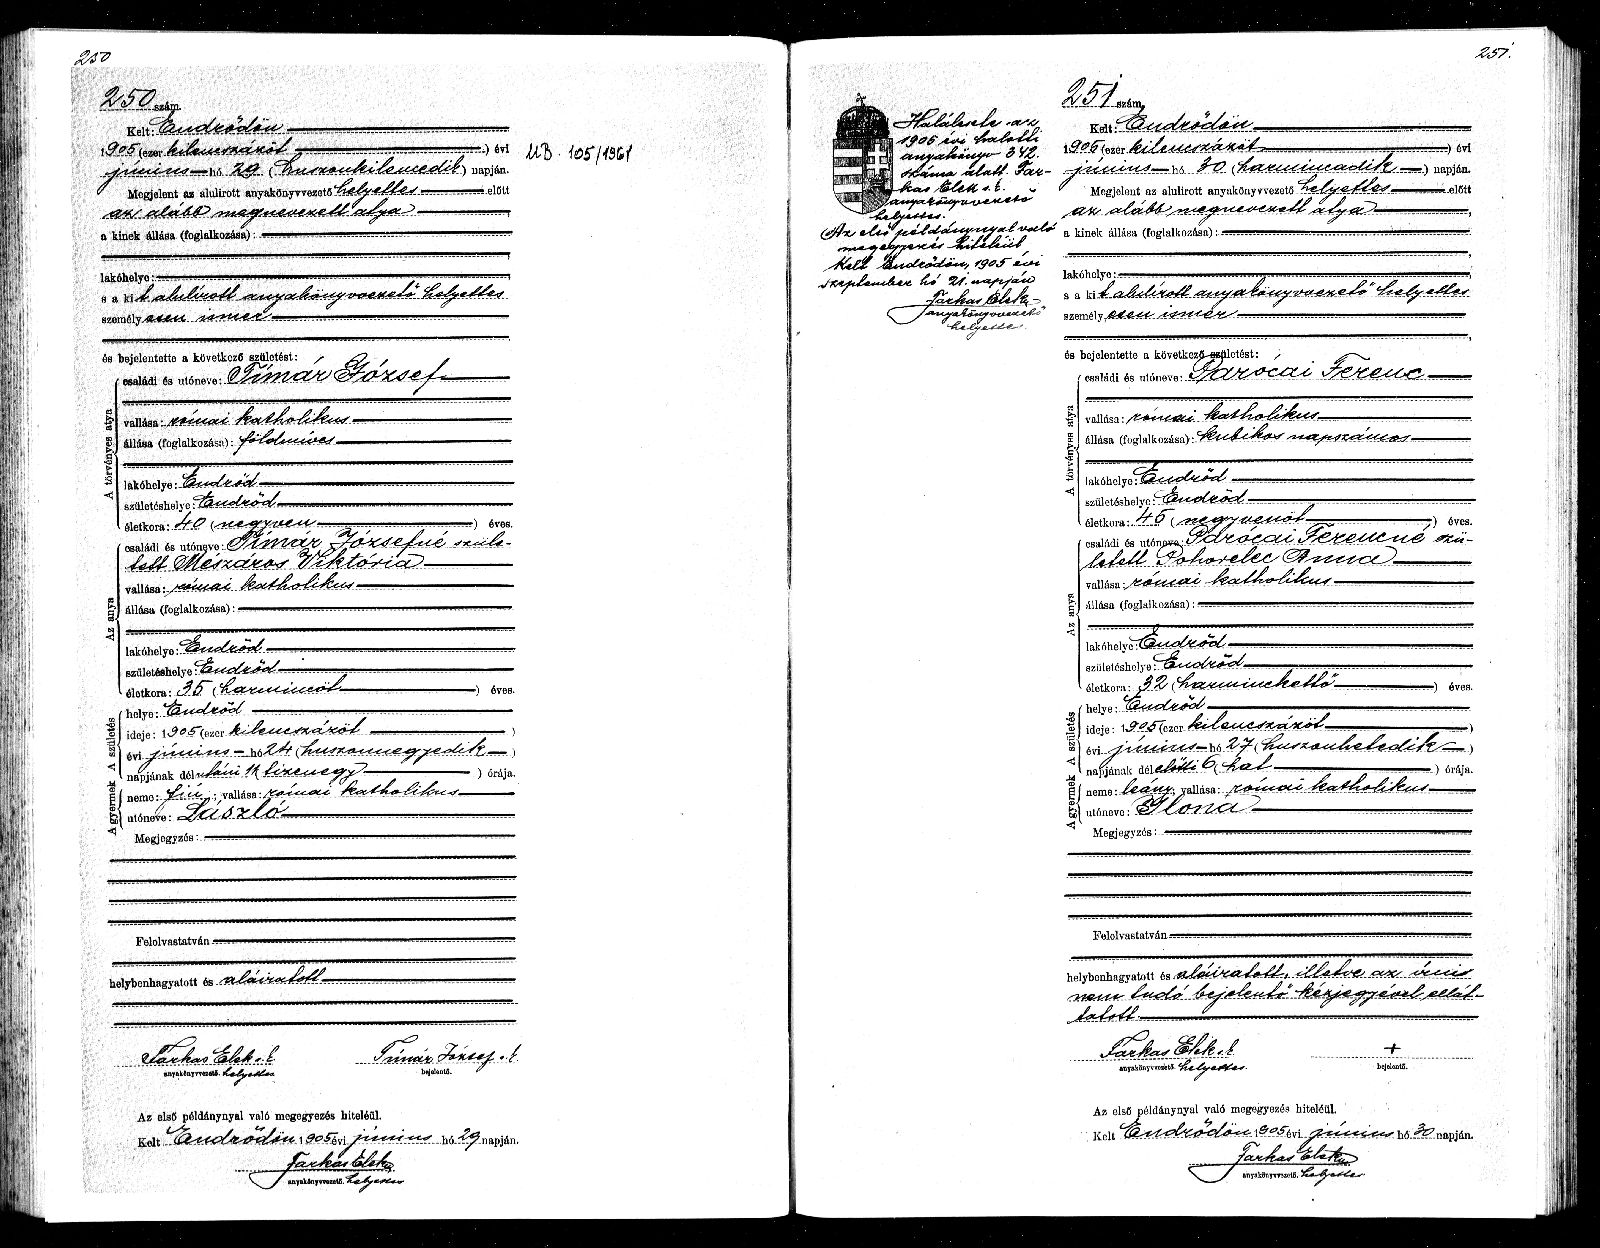 250
250 szám.
Kelt: Endrődön
1905 (ezer kilenczszázöt) évi
június hó 29 (huszonkilencedik) napján.
Megjelent az alulirott anyakönyvvezető helyettes előtt
az alább megnevezett atya
a kinek állása (foglalkozása):
lakóhelye:
s a kit alulírott anyakönyvvezető helyettes
személyesen ismer
és bejelentette a következő születést:
A törvényes atya
családi és utóneve: Tímár József
vallása: római katholikus
állása (foglalkozása): földmíves
lakóhelye: Endrőd
születéshelye: Endrőd
életkora: 40 (negyven) éves.
Az anya
családi és utóneve: Tímár Józsefné szüle-
tett Mészáros Viktória
vallása: római katholikus
állása (foglalkozása):
lakóhelye: Endrőd
születéshelye: Endrőd
életkora: 35 (harmincöt) éves.
A gyermek A születés
helye: Endrőd
ideje: 1905 (ezer kilencszázöt)
évi június hó 24 (huszonnegyedik)
napjának délutáni 11 tizenegy) órája.
neme: fiú; vallása: római katholikus
utóneve: László
Megjegyzés:
Felolvastatván
helybenhagyatott és aláiratott
Farkas Elek s. k. Tímár József s. k.
anyakönyvvezető. helyettes bejelentő.
Az első példánynyal való megegyezés hiteléül.
Kelt Endrődön 1905 évi június hó 29 napján.
Farkas Elek
anyakönyvvezető. helyettes
MB. 105/1961
251.
Halálesete az
1905 évi halotti
anyakönyv 342.
száma alatt. Far-
kas Elek s. k.
anyakönyvvezető
helyettes.
Az első példánynyal való
megegyezés hiteléül
Kelt Endrődön, 1905 évi
szeptember hó 21. napján
Farkas Elek
anyakönyvvezető
helyettes.
251 szám.
Kelt: Endrődön
1905 (ezer kilencszázöt) évi
június hó 30 (harmincadik) napján.
Megjelent az alulirott anyakönyvvezető helyettes előtt
az alább megnevezett atya
a kinek állása (foglalkozása):
lakóhelye:
s a kit alulírott anyakönyvvezető helyettes
személyesen ismer
és bejelentette a következő születést:
A törvényes atya
családi és utóneve: Parócai Ferenc
vallása: római katholikus
állása (foglalkozása): kubikos napszámos
lakóhelye: Endrőd
születéshelye: Endrőd
életkora: 45 (negyvenöt) éves.
Az anya
családi és utóneve: Parócai Ferencné szü-
letett Pohorelec Anna
vallása: római katholikus
állása (foglalkozása):
lakóhelye: Endrőd
születéshelye: Endrőd
életkora: 32 (harminckettő) éves.
A gyermek A születés
helye: Endrőd
ideje: 1905 (ezer kilencszázöt)
évi június hó 27 (huszonhetedik)
napjának délelőtti 6 (hat) órája.
neme: leány, vallása: római katholikus
utóneve: Ilona
Megjegyzés:
Felolvastatván
helybenhagyatott és aláiratott, illetve az írni
nem tudó bejelentő kézjegyével ellát-
tatott.
Farkas Elek s. k. +
anyakönyvvezető. helyettes. bejelentő.
Az első példánynyal való megegyezés hiteléül.
Kelt Endrődön 1905 évi június hó 30 napján.
Farkas Elek
anyakönyvvezető. helyettes